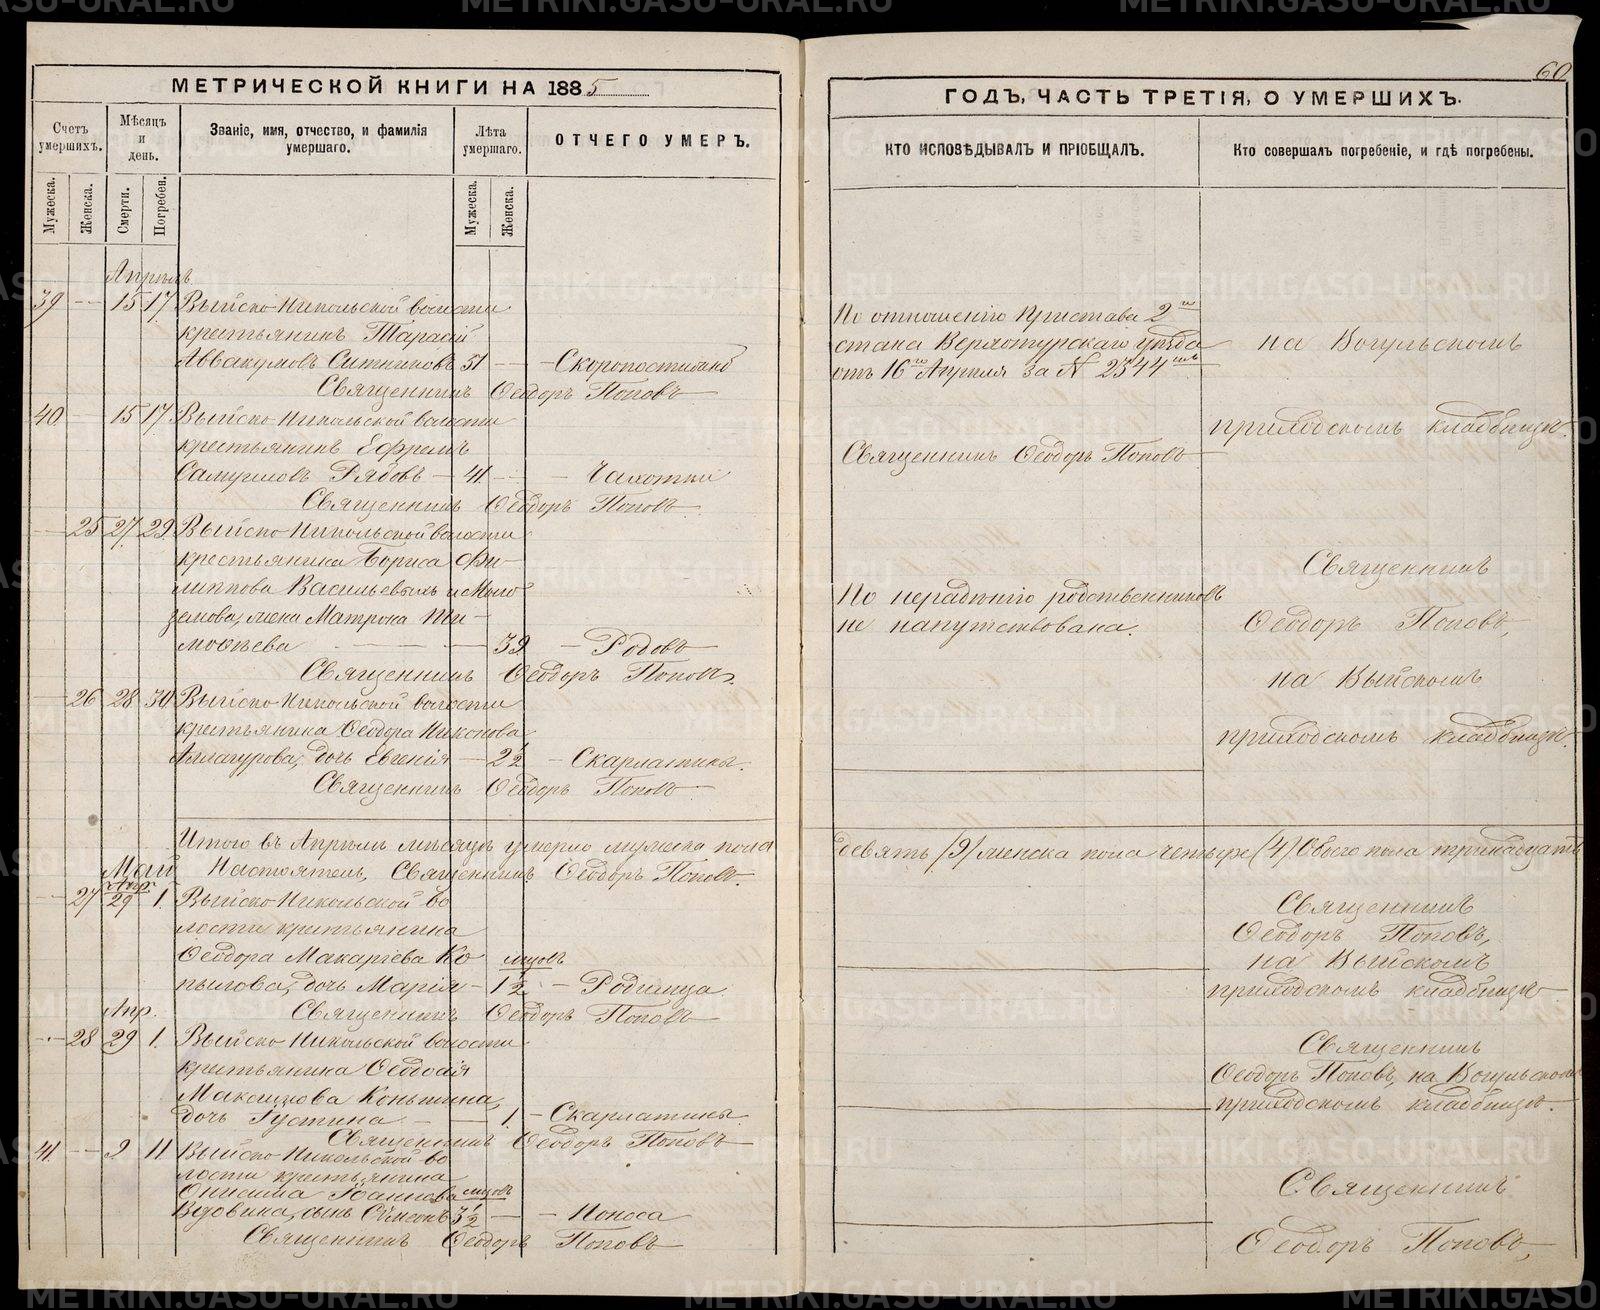 МЕТРИЧЕСКОЙ КНИГИ НА 1885
Счетъ умершихъ.
Мѣсяцъ и день.
Званіе, имя, отчество, и фамилія умершаго.
Лѣта умершаго.
ОТЧЕГО УМЕРЪ.
Мужеска.
Женска.
Смерти.
Погребен.
Мужеска.
Женска.
Апрѣль
39 — 15 17 Выйско-Никольской волости
крестьянинъ Тарасій
Аввакумовъ Ситниковъ 51 — — Скоропостижно
Священникъ Ѳеодоръ Поповъ
40 — 15 17 Выйско-Никольской волости
крестьянинъ Ефремъ
Самуиловъ Рябовъ — 41 — — Чахотки
Священникъ Ѳеодоръ Поповъ
— 25 27 29 Выйско-Никольской волости
крестьянина Бориса Фи-
липпова Васильевыхъ и Мыло
земова, жена Матрона Ти-
моѳеева — — — 39 — Родовъ
Священникъ Ѳеодоръ Поповъ.
— 26 28 30 Выйско-Никольской волости
крестьянина Ѳеодора Никонова
дочь Евгенія — 2½ — Скарлатины.
Священникъ Ѳеодоръ Поповъ
Итого въ Апрѣлѣ мѣсяцѣ умерло мужеска пола
Май Настоятель, Священникъ Ѳеодоръ Поповъ.
Апр.
— 27 29 1 Выйско-Никольской во
лости крестьянина
Ѳеодора Макаріева Ко
пылова, дочь Марія — мцовъ 1½ — Родимца
Апр. Священникъ Ѳеодоръ Поповъ
— 28 29 1. Выйско-Никольской волости
крестьянина Ѳеодосія
Максимова Коньшина,
дочь Іустина — — 1. — Скарлатины
Священникъ Ѳеодоръ Поповъ
41. — 2 11 Выйско-Никольской во
лости крестьянина
Онисима Іоаннова мцовъ
Вдовина, сынъ Сѵмеонъ 3½ — — Поноса
Священникъ Ѳеодоръ Поповъ
60
ГОДЪ, ЧАСТЬ ТРЕТІЯ, О УМЕРШИХЪ.
КТО ИСПОВѢДЫВАЛЪ И ПРІОБЩАЛЪ.
Кто совершалъ погребеніе, и гдѣ погребены.
По отношенію Пристава 2го
стана Верхотурскаго уѣзда
отъ 16го Апрѣля за № 2544мъ
на Вогульскомъ
приходскомъ кладбищѣ.
Священникъ Ѳеодоръ Поповъ
По нерадѣнію родственниковъ
не напутствована.
Священникъ
Ѳеодоръ Поповъ,
на Выйскомъ
приходскомъ кладбищѣ.
девять (9) женска пола четыре (4) Обоего пола тринадцать
Священникъ
Ѳеодоръ Поповъ,
на Выйскомъ
приходскомъ кладбищѣ
Священникъ
Ѳеодоръ Поповъ, на Вогульскомъ
приходскомъ кладбищѣ.
Священникъ
Ѳеодоръ Поповъ,
METRIKI.GASO-URAL.RU